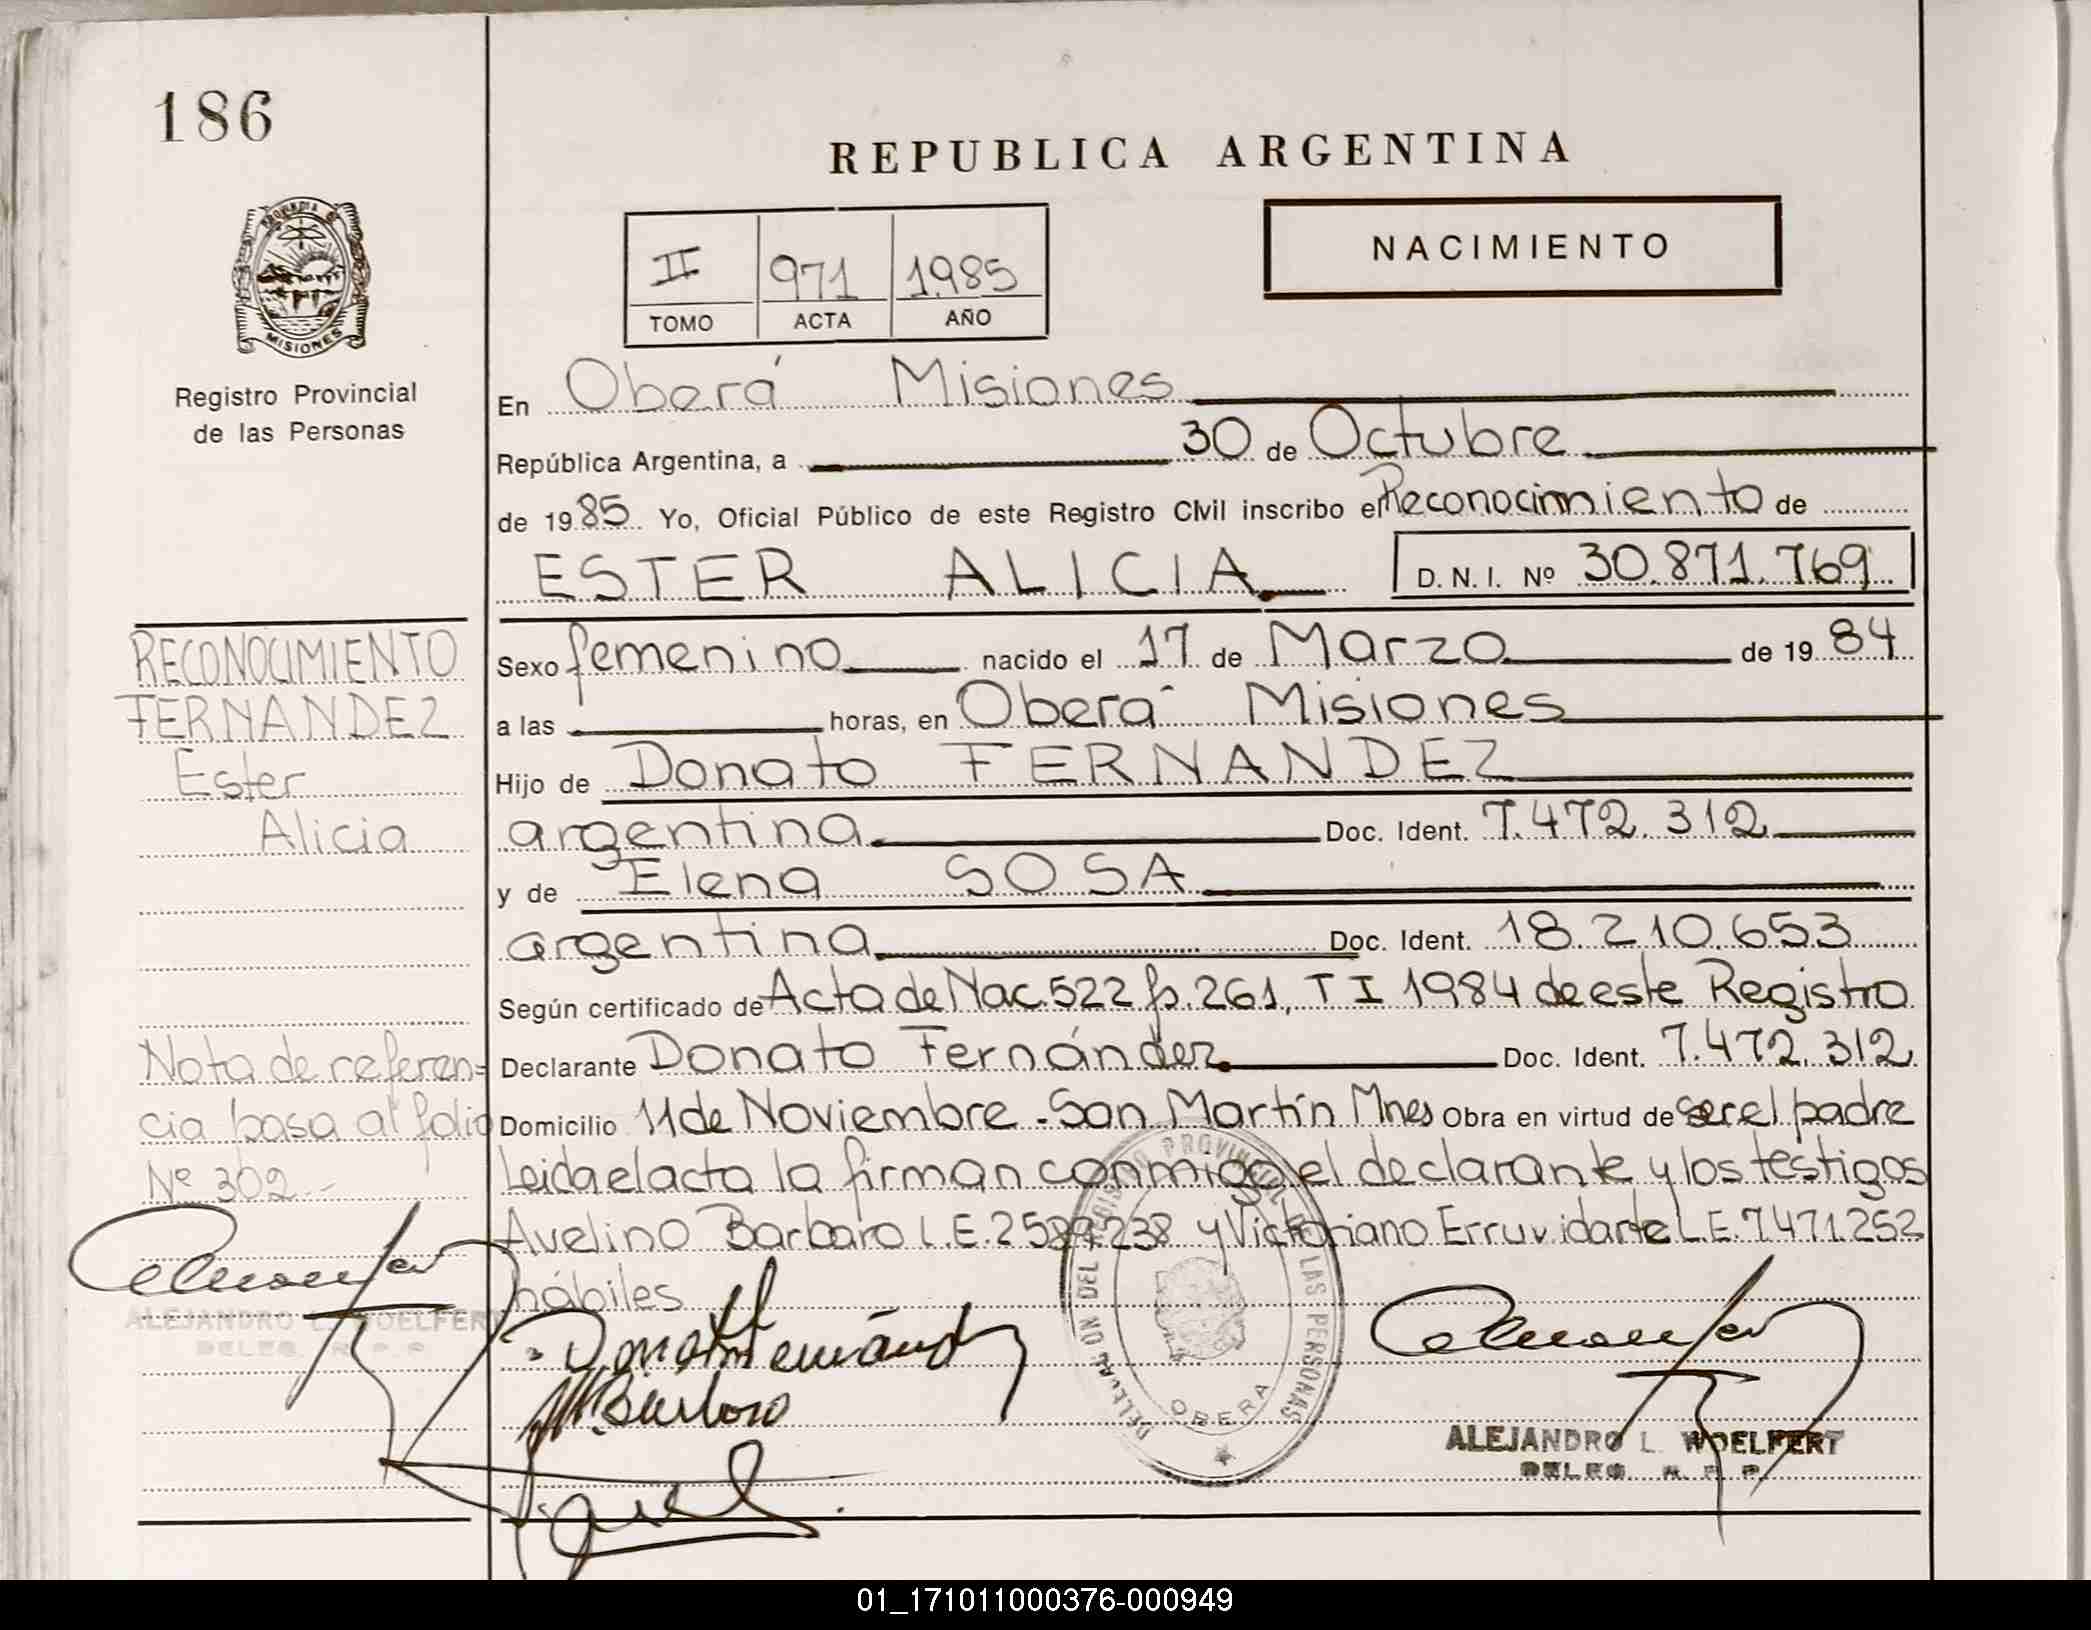 186
REPUBLICA ARGENTINA
NACIMIENTO
II 971 1985
TOMO ACTA AÑO
PROVINCIA DE
MISIONES
Registro Provincial
de las Personas
En Oberá Misiones
República Argentina, a 30 de Octubre
de 1985 Yo, Oficial Público de este Registro Civil inscribo el Reconocimiento de
ESTER ALICIA D. N. I. Nº 30.871.769
RECONOCIMIENTO
FERNANDEZ
Ester
Alicia
Sexo femenino nacido el 17 de Marzo de 1984
a las horas, en Oberá Misiones
Hijo de Donato FERNANDEZ
argentina Doc. Ident. 7.472.312
y de Elena SOSA
argentina Doc. Ident. 18.210.653
Según certificado de Acta de Nac. 522 fo. 261, T I 1984 de este Registro
Declarante Donato Fernández Doc. Ident. 7.472.312
Domicilio 11 de Noviembre - San Martín Mnes Obra en virtud de ser el padre
Leida el acta la firman conmigo el declarante y los testigos
Avelino Barbaro L.E. 2589238 y Victoriano Erruvidarte L.E. 7.471.252
hábiles
Nota de referen=
cia pasa al folio
Nº 302.-
ALEJANDRO L. WOELFERT
DELEG. R. P. P.
Donato Fernández
DELEGACION DEL REGISTRO PROVINCIAL DE LAS PERSONAS
OBERA
ALEJANDRO L. WOELFERT
DELEG. R. P. P.
01_171011000376-000949